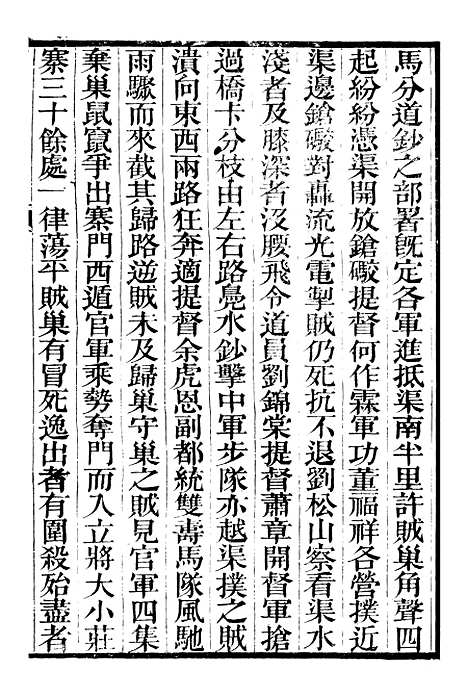 馬分道鈔之部署旣定各軍進抵渠南半里許賊巢角聲四
起紛紛憑渠開放鎗礮提督何作霖軍功董福祥各營撲近
渠邊鎗礮對轟流光電掣賊仍死抗不退劉松山察看渠水
淺者及膝深者沒腰飛令道員劉錦棠提督蕭章開督軍搶
過橋卡分枝由左右路鳧水鈔擊中軍步隊亦越渠撲之賊
潰向東西兩路狂奔適提督余虎恩副都統雙壽馬隊風馳
雨驟而來截其歸路逆賊未及歸巢守巢之賊見官軍四集
棄巢鼠竄爭出寨門西遁官軍乘勢奪門而入立將大小莊
寨三十餘處一律蕩平賊巢有冒死逸出者有圍殺殆盡者